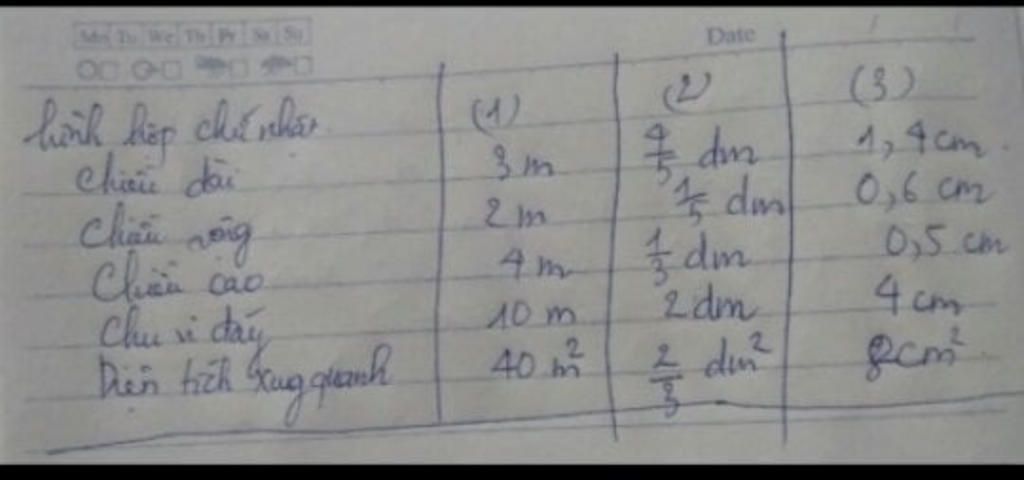 Mo Tu We Th Fr Sa Su
Date
hình hộp chữ nhật (1) (2) (3)
Chiều dài 3 m 4/5 dm 1,4 cm
Chiều rộng 2 m 1/5 dm 0,6 cm
Chiều cao 4 m 1/3 dm 0,5 cm
Chu vi đáy 10 m 2 dm 4 cm
Diện tích xung quanh 40 m² 2/3 dm² 2 cm²